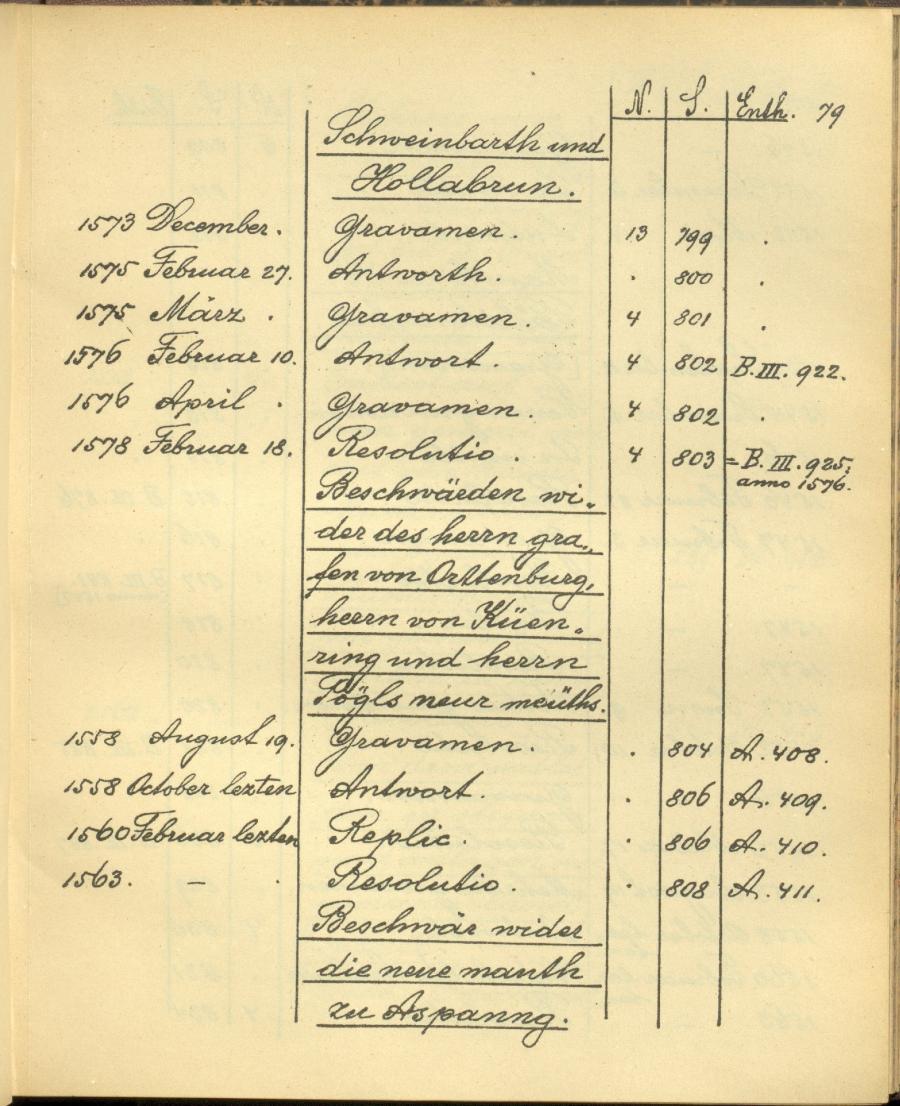 N. S. Enth. 79
Schweinbarth und
Hollabrun.
1573 December. Gravamen. 13 799 .
1575 Februar 27. Antworth. . 800 .
1575 März . Gravamen. 4 801 .
1576 Februar 10. Antwort. 4 802 B. III. 922.
1576 April . Gravamen. 4 802 .
1578 Februar 18. Resolutio. 4 803 = B. III. 925;
anno 1576.
Beschwärden wi„
der des herrn gra„
fen von Orttenburg,
herrn von Küen„
ring und herrn
Pögls neur meüths.
1558 August 19. Gravamen. . 804 A. 408.
1558 October lezten Antwort. . 806 A. 409.
1560 Februar lezten Replic. . 806 A. 410.
1563. – . Resolutio. . 808 A. 411.
Beschwär wider
die neue mauth
zu Aspanng.